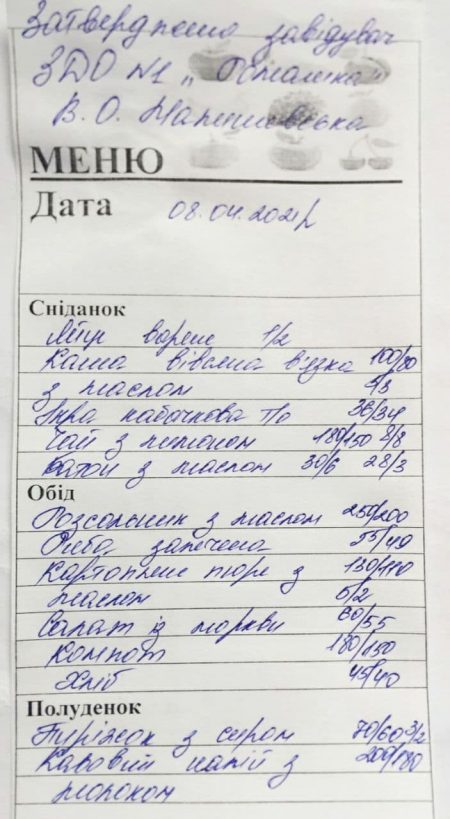 Затверджено завідувач
ЗДО №1 „
В. О.
МЕНЮ
Дата 08.04.2021р
Сніданок
Яйце варене 1/2
Каша вівсяна в'язка 100/80
з маслом
Ікра кабачкова п/о 36/34
Чай з лимоном 180/150 8/8
Батон з маслом 30/6 28/3
Обід
Розсольник з маслом 250/200
Риба запечена 55/40
Картопляне пюре з 130/110
маслом 5/2
Салат із моркви 60/55
Компот 180/150
Хліб 45/40
Полуденок
Пиріжок з сиром 70/60 3/2
Кавовий напій з 200/180
молоком